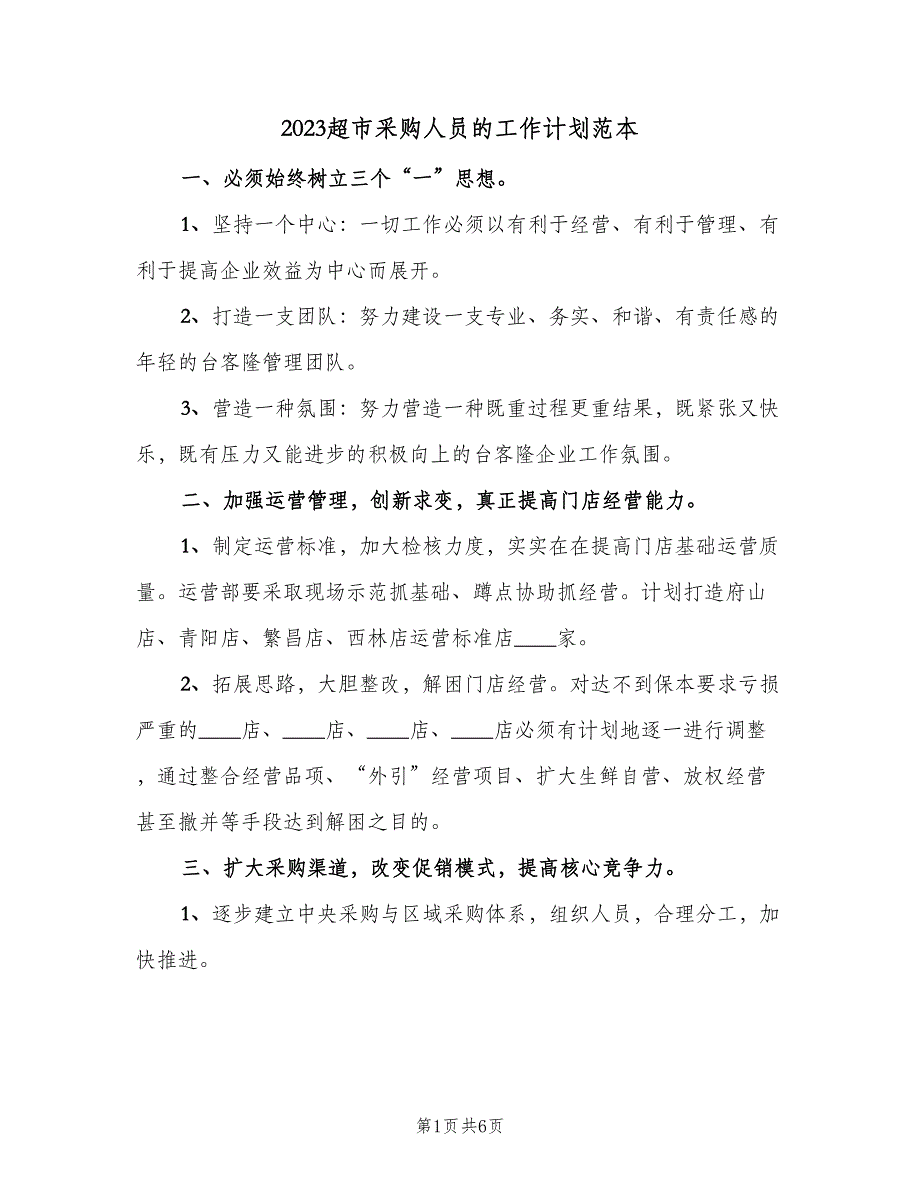 2023超市采购人员的工作计划范本
一、必须始终树立三个“一”思想。
1、坚持一个中心：一切工作必须以有利于经营、有利于管理、有
利于提高企业效益为中心而展开。
2、打造一支团队：努力建设一支专业、务实、和谐、有责任感的
年轻的台客隆管理团队。
3、营造一种氛围：努力营造一种既重过程更重结果，既紧张又快
乐，既有压力又能进步的积极向上的台客隆企业工作氛围。
二、加强运营管理，创新求变，真正提高门店经营能力。
1、制定运营标准，加大检核力度，实实在在提高门店基础运营质
量。运营部要采取现场示范抓基础、蹲点协助抓经营。计划打造府山
店、青阳店、繁昌店、西林店运营标准店____家。
2、拓展思路，大胆整改，解困门店经营。对达不到保本要求亏损
严重的____店、____店、____店、____店必须有计划地逐一进行调整
，通过整合经营品项、“外引”经营项目、扩大生鲜自营、放权经营
甚至撤并等手段达到解困之目的。
三、扩大采购渠道，改变促销模式，提高核心竞争力。
1、逐步建立中央采购与区域采购体系，组织人员，合理分工，加
快推进。
第1页共6页